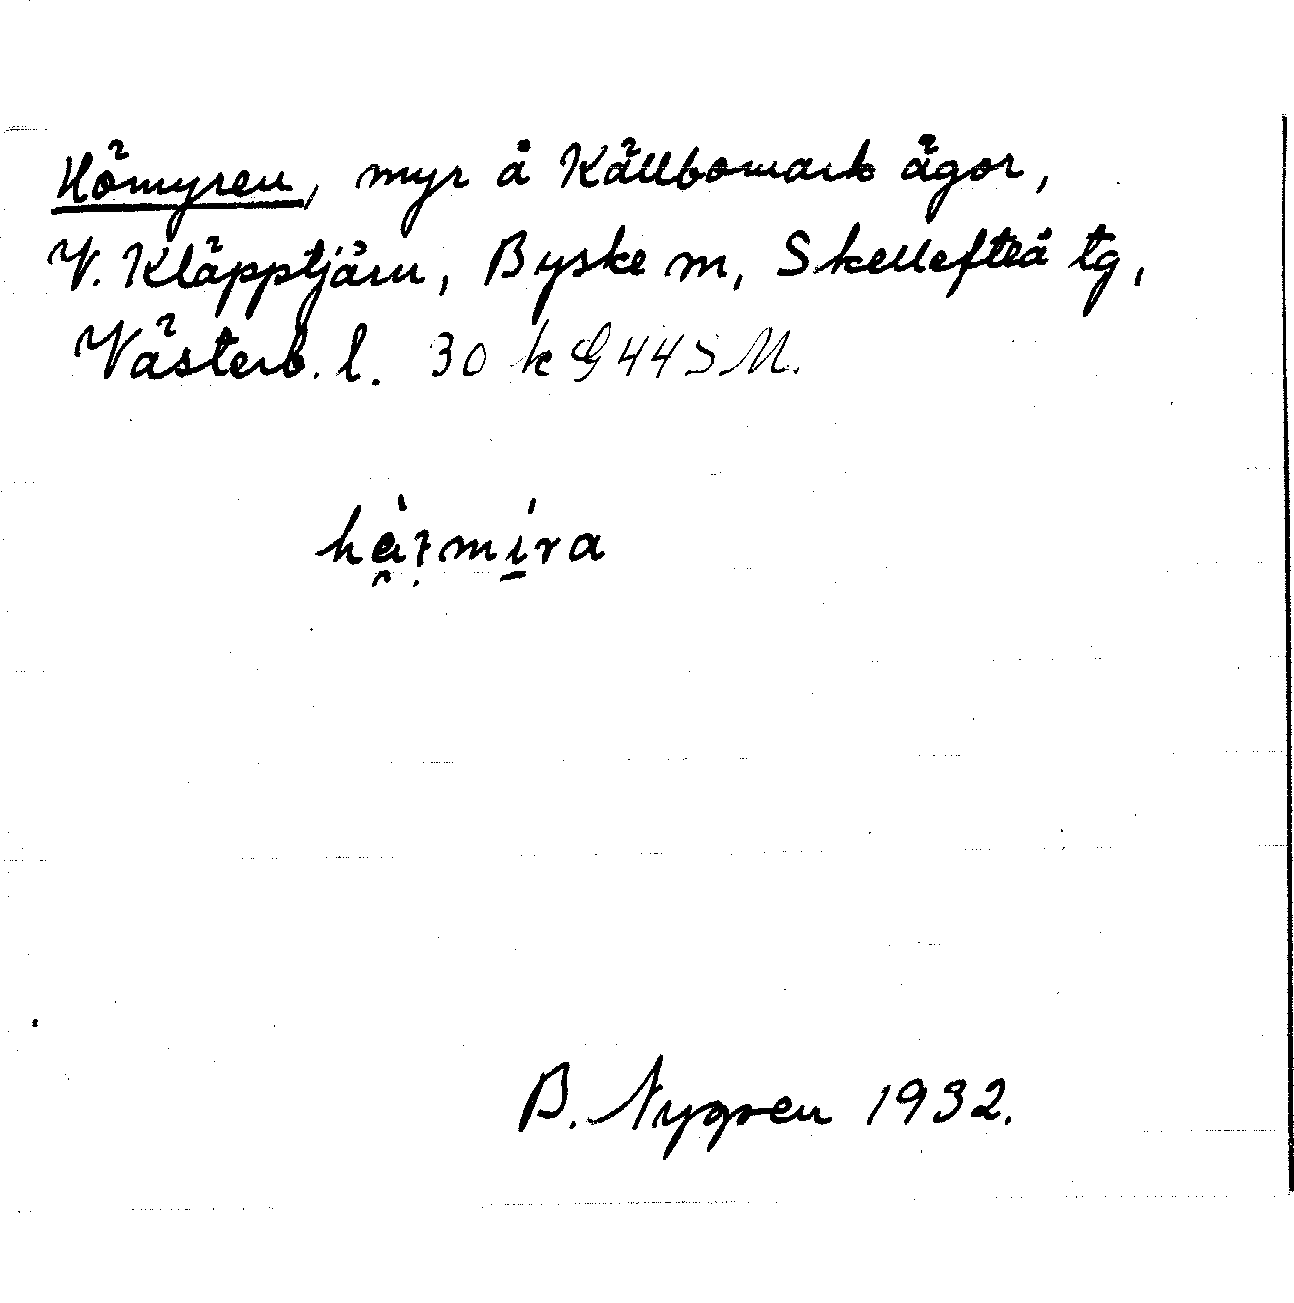 Hömyren, myr å Källbomark ägor,
V. Kläpptjärn, Byske sn, Skellefteå tg,
Västerb. l. 30 k G 44 S M.
B. Nygren 1932.